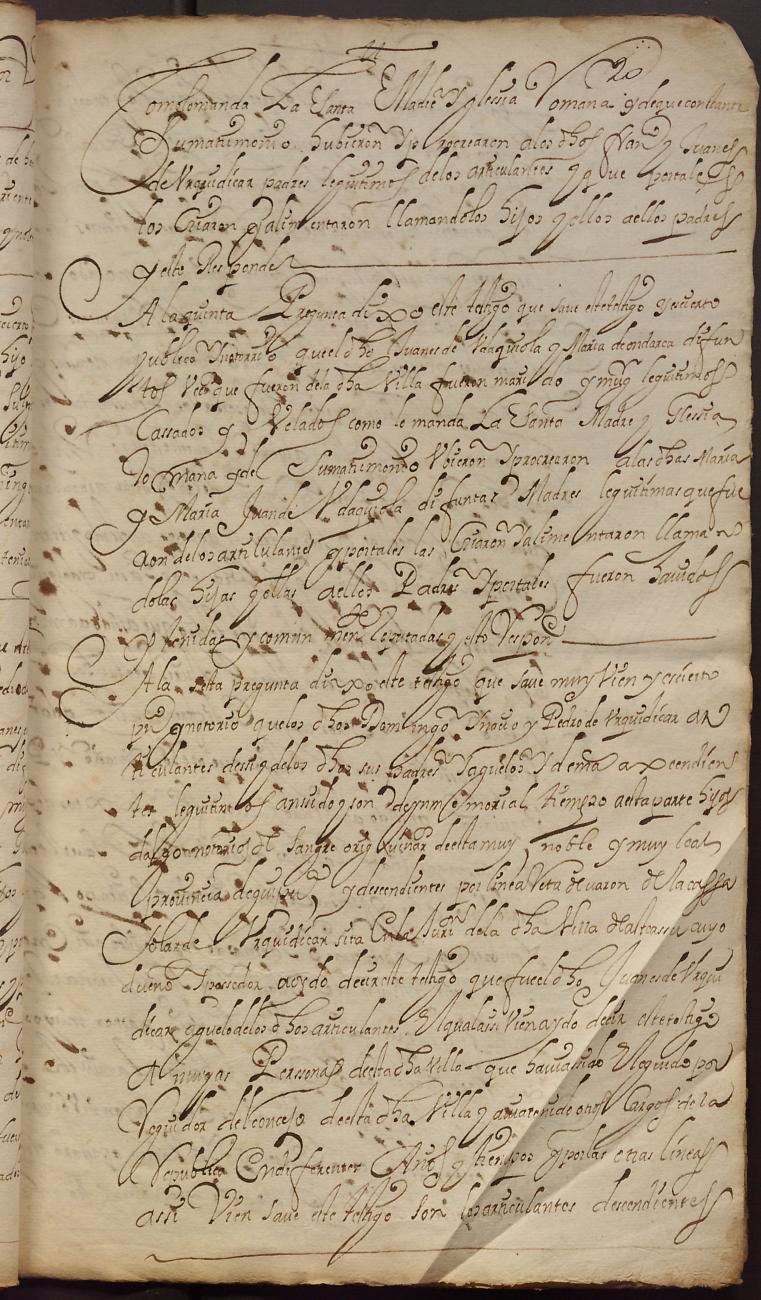 20
Como lo manda La Santa Madre yglessia Romana y de que constante
Su matrimonio hubieron y procrearon a los dhos Juan y Juanes
de Vrquidicar padres legitimos de los articulantes y que por tales
los Criaron y alimentaron llamandolos hijos y ellos a ellos padres
y esto Responde
A la quinta Pregunta dixo este testigo que save este testigo y es cierto
publico y notorio que el dho Juanes de Vdaquiola y Maria de ondarca difun
tos Vecs que fueron de la dha Villa fueron marido y muger legitimos
Cassados y Velados como lo manda La Santa Madre yglessia
Romana y de Su matrimonio Vbieron y procrearon a las dhas Maria
y Maria Juan de Vdaquiola difuntas Madres legitimas que fue
ron de los articulantes y por tales las Criaron y alimentaron llaman
dolas hijas y ellas a ellos Padres y por tales fueron havidos
y tenidas y comunmente Reputadas y esto Respon
A la sesta pregunta dixo este testigo que save muy vien y es cierto
puco y notorio que los dhos Domingo y Pedro de Vrquidicar ar
ticulantes y los dhos sus padres y aguelos y demas axcendien
tes legitimos an sido y son de ynmemorial tiempo a esta parte hijos
dalgo notorios de sangre originarios de esta muy noble y muy leal
provincia de guipuca y descendientes por linea Reta de varon de la cassa
Solar de Vrquidicar sita en la Jurin de la dha Villa de alcassu cuyo
dueño y posseedor a oydo decir este testigo que fue el dho Juanes de Vrqui
dicar aguelo de los dhos articulantes El qual assi vien a oydo decir este testigo
A muchas Personas de esta dha villa que havia sido Elegido por
Regidor del concejo de esta dha Villa y avia tenido otros Cargos de la
Republica En diferentes Años y tiempos y por las otras lineas
assi Vien save este testigo son los articulantes descendientes